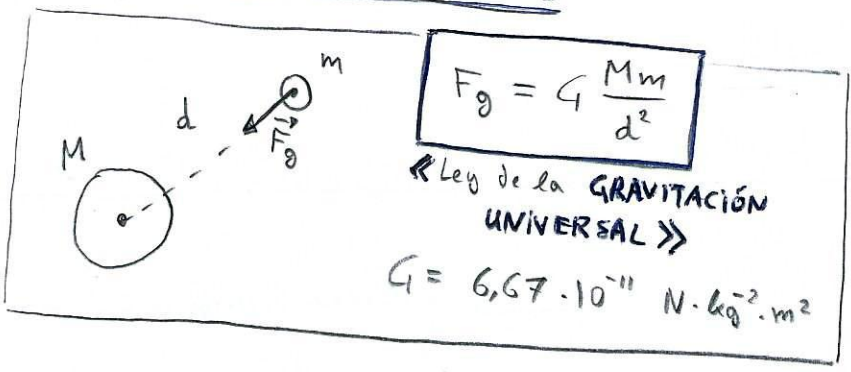 m
d
F⃗g
M
Fg = G Mm / d²
«Ley de la GRAVITACIÓN
UNIVERSAL»
G = 6,67 · 10⁻¹¹ N · kg⁻² · m²